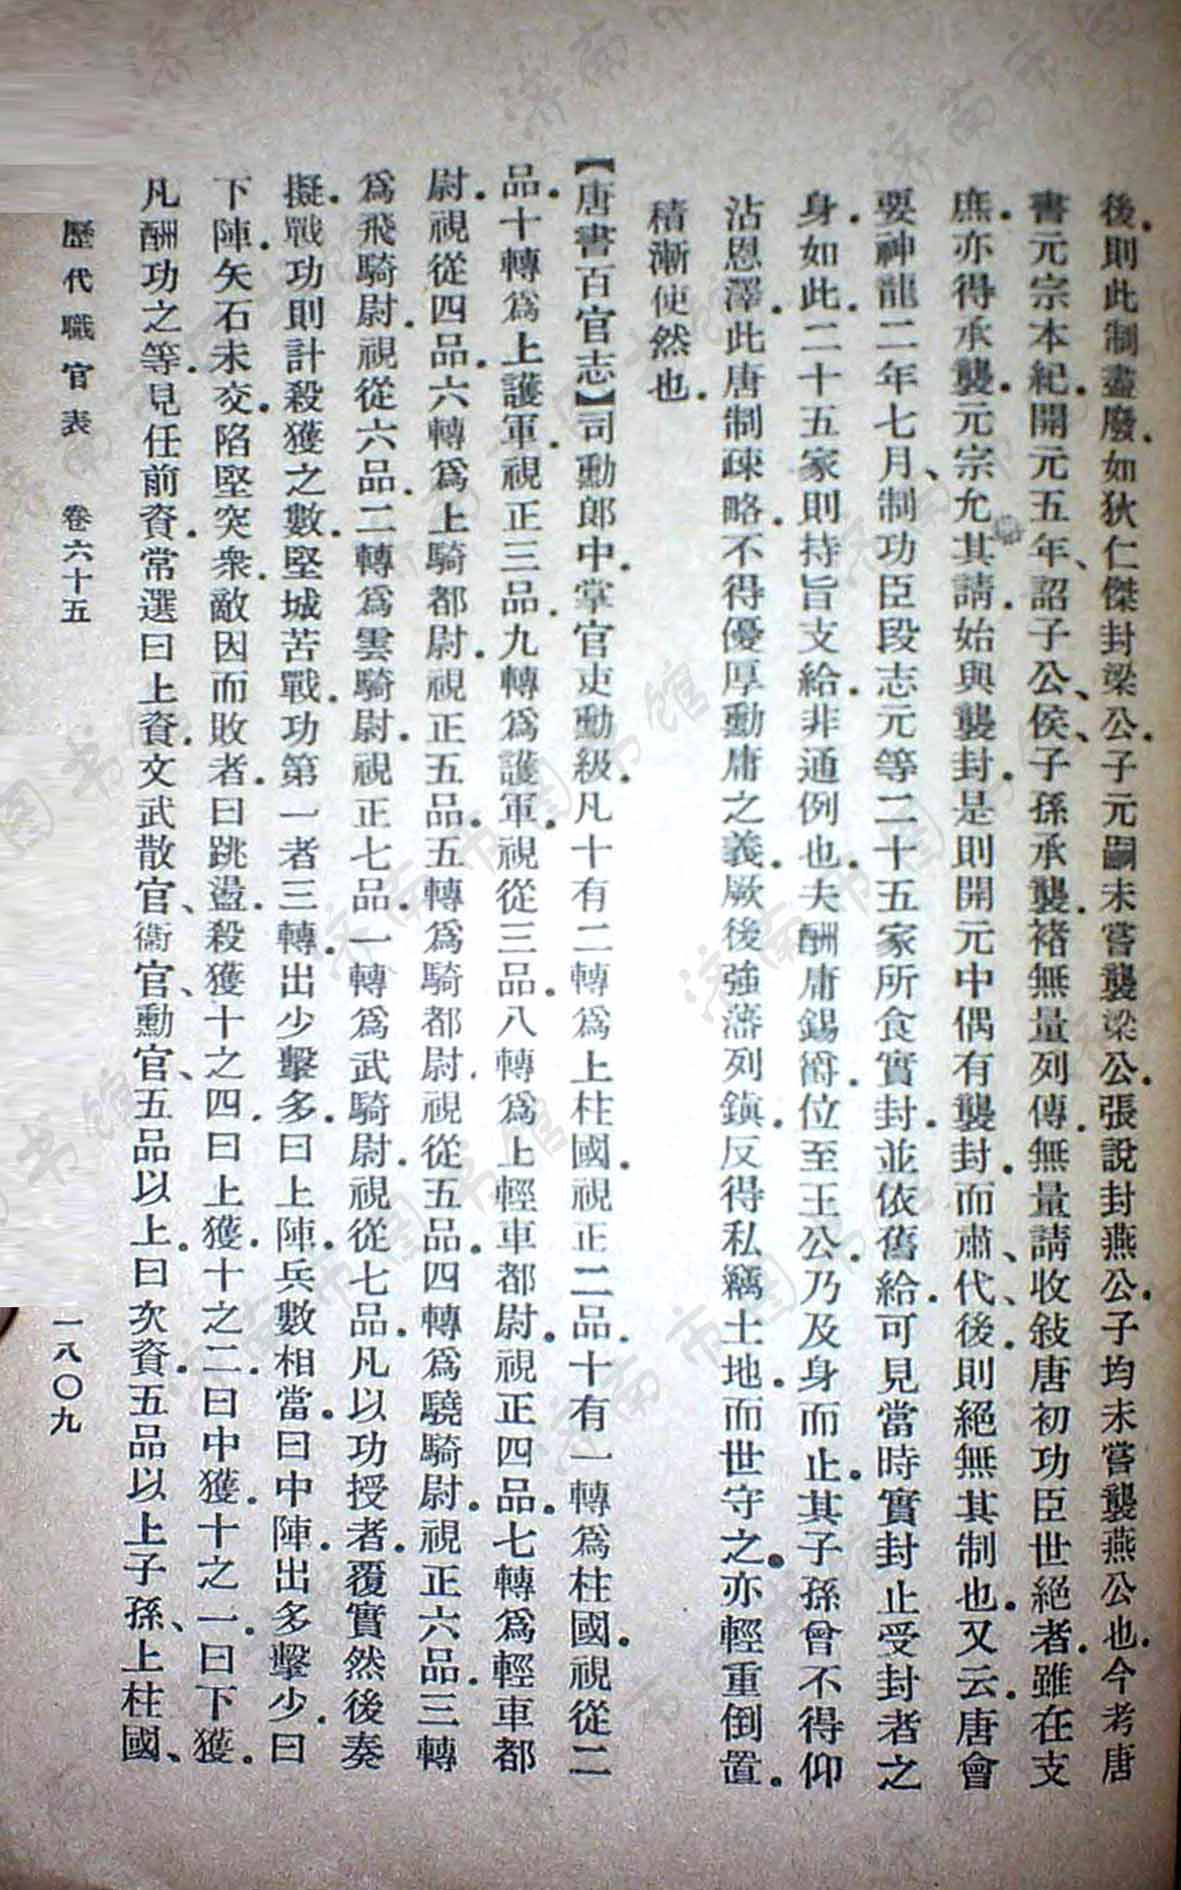 後。則此制盡廢。如狄仁傑封梁公。子元嗣未嘗襲梁公。張說封燕公。子均未嘗襲燕公也。今考唐
書元宗本紀。開元五年、詔子公、侯、子孫承襲。褚無量列傳。無量請收敍唐初功臣世絕者。雖在支
庶。亦得承襲。元宗允其請。始與襲封。是則開元中偶有襲封。而肅、代、後。則絕無其制也。又云。唐會
要神龍二年七月、制功臣段志元等二十五家所食實封。並依舊給。可見當時實封止受封者之
身。如此。二十五家。則持旨支給。非通例也。夫酬庸錫爵。位至王公。乃及身而止。其子孫曾不得仰
沾恩澤。此唐制疎略。不得優厚勳庸之義。厥後強藩列鎮。反得私竊土地。而世守之。亦輕重倒置。
積漸使然也。
【唐書百官志】司勳郎中。掌官吏勳級。凡十有二轉爲上柱國。視正二品。十有一轉爲柱國。視從二
品。十轉爲上護軍。視正三品。九轉爲護軍。視從三品。八轉爲上輕車都尉。視正四品。七轉爲輕車都
尉。視從四品。六轉爲上騎都尉。視正五品。五轉爲騎都尉。視從五品。四轉爲驍騎尉。視正六品。三轉
爲飛騎尉。視從六品。二轉爲雲騎尉。視正七品。一轉爲武騎尉。視從七品。凡以功授者。覆實然後奏
擬。戰功則計殺獲之數。堅城苦戰。功第一者三轉。出少擊多。曰上陣。兵數相當。曰中陣。出多擊少。曰
下陣。矢石未交。陷堅突衆。敵因而敗者。曰跳盪。殺獲十之四。曰上獲。十之二。曰中獲。十之一。曰下獲。
凡酬功之等。見任前資。常選曰上資。文武散官、衞官、勳官、五品以上。曰次資。五品以上子孫、上柱國、
歷代職官表 卷六十五 一八〇九
济南市图书馆